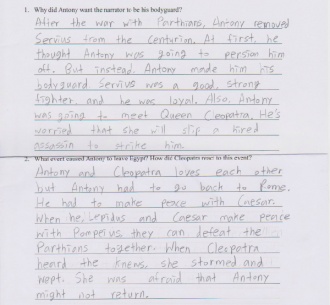 1. Why did Antony want the narrator to be his bodyguard?
After the war with Parthians, Antony removed
Servius from the centurion. At first, he
thought Antony was going to persion him
off. But instead, Antony made him his
bodyguard Servius was a good, strong
fighter, and he was loyal. Also, Antony
was going to meet Queen Cleopatra. He's
worried that she will slip a hired
assassin to strike him.
2. What event caused Antony to leave Egypt? How did Cleopatra react to this event?
Antony and Cleopatra loves each other
but Antony had to go back to Rome.
He had to make peace with Caesar.
When he, Lepidus and Caesar make peace
with Pompeius, they can defeat the
Parthians together. When Cleopatra
heard the knews, she stormed and
wept. She was afraid that Antony
might not return.